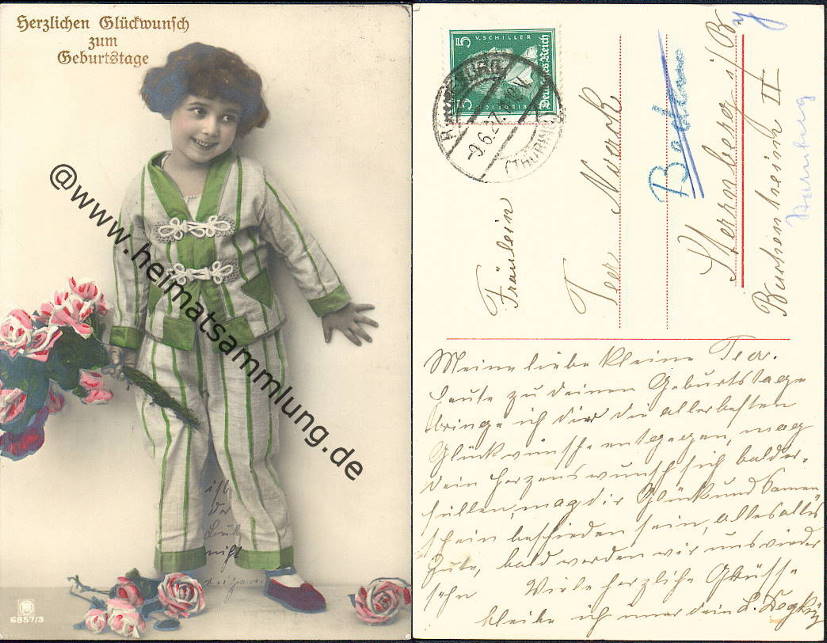 Herzlichen Glückwunsch
zum
Geburtstage
@www.heimatsammlung.de
ist
der
nicht
6857/3
5 V. SCHILLER 5
Deutsches Reich
9.6.27
(THÜRING
Fräulein
Noack
Sternberg i/B
Buchenheim II
Meine liebe kleine
heute zu deinem Geburtstage
bringe ich dir die allerbesten
Glückwünsche entgegen, mag
dein Herzenswunsch sich balder-
füllen, mag dir Glück und Sonnen
schein beschieden sein, alles alles
Gute, bald werden wir uns wieder
sehn Viele herzliche Grüsse
bleibe ich immer dein